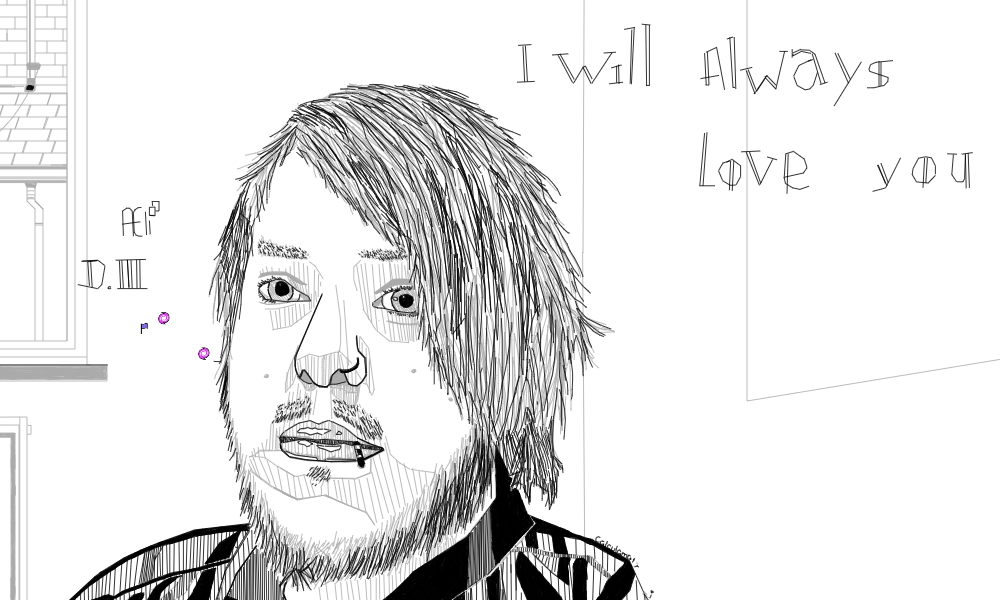 I will Always
love you
Æli
D.III